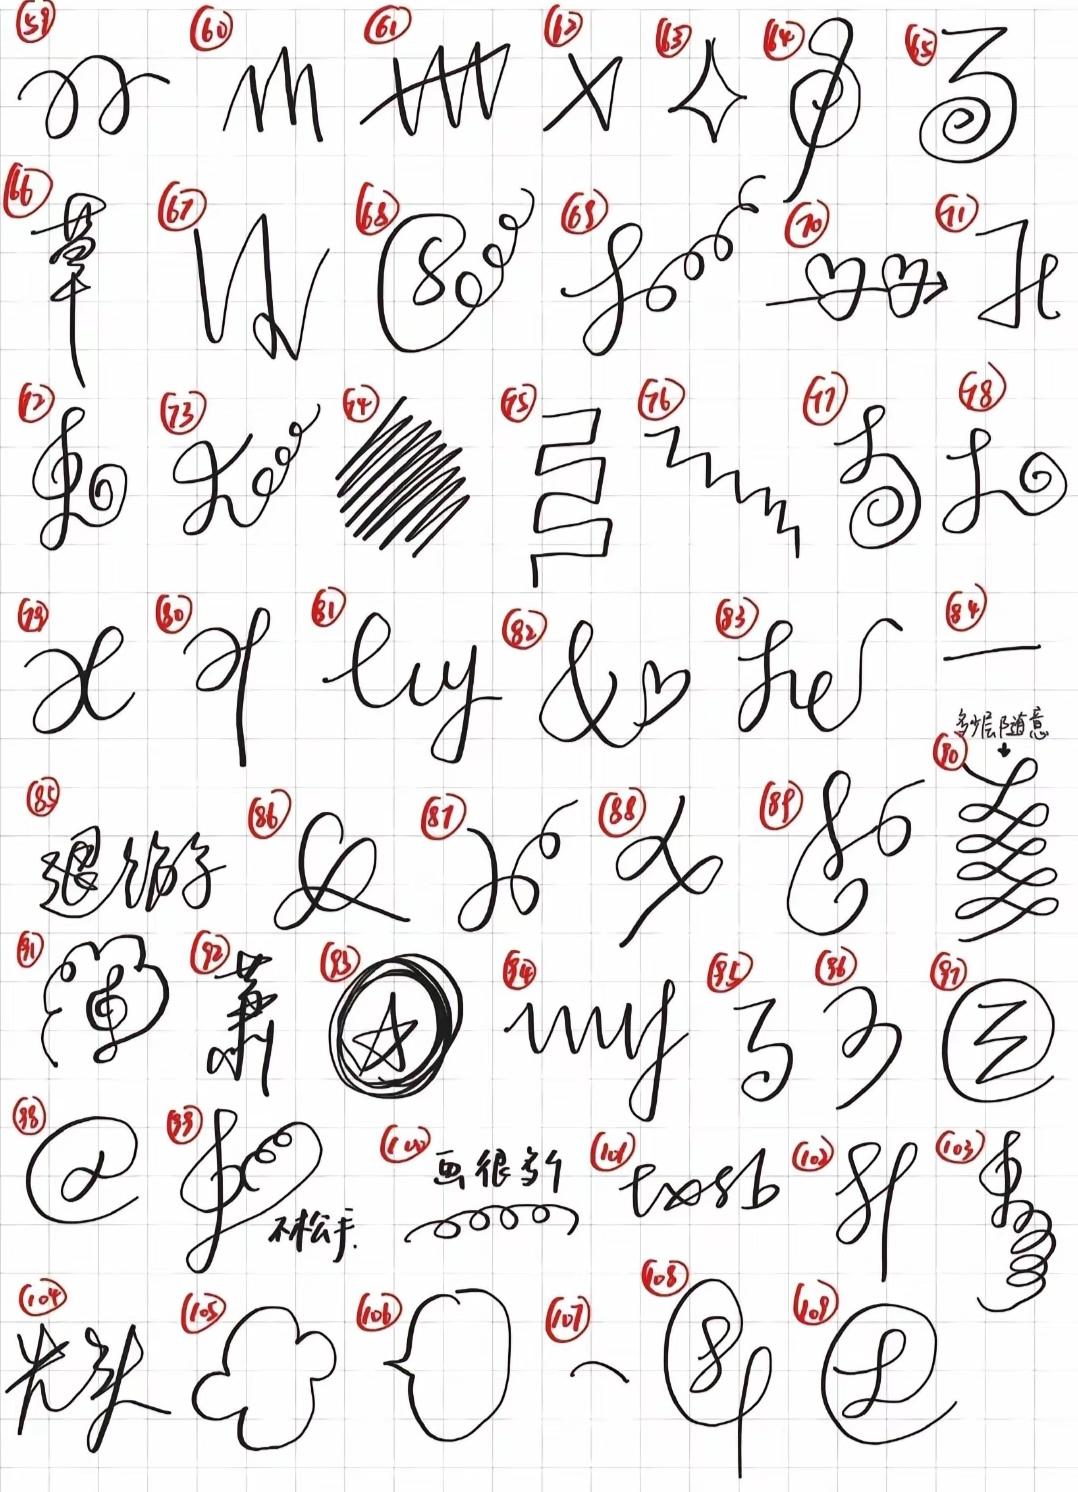 59 60 61 62 63 64 65
66 67 68 69 70 71
72 73 74 75 76 77 78
79 80 81 luy 82 83 84
多少层随意
85 退游 86 87 88 89 90
91 92 萧 93 94 my 95 96 97
98 @ 99 100 101 102 103
画很多个 txsb
不松手.
104 光头 105 106 107 108 109